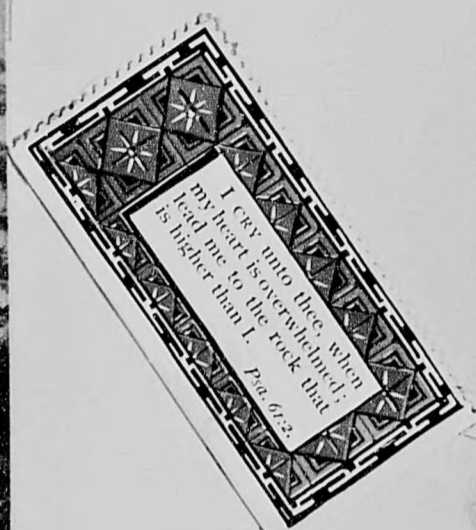 I CRY unto thee, when
my heart is overwhelmed;
lead me to the rock that
is higher than I. Psa. 61:2.